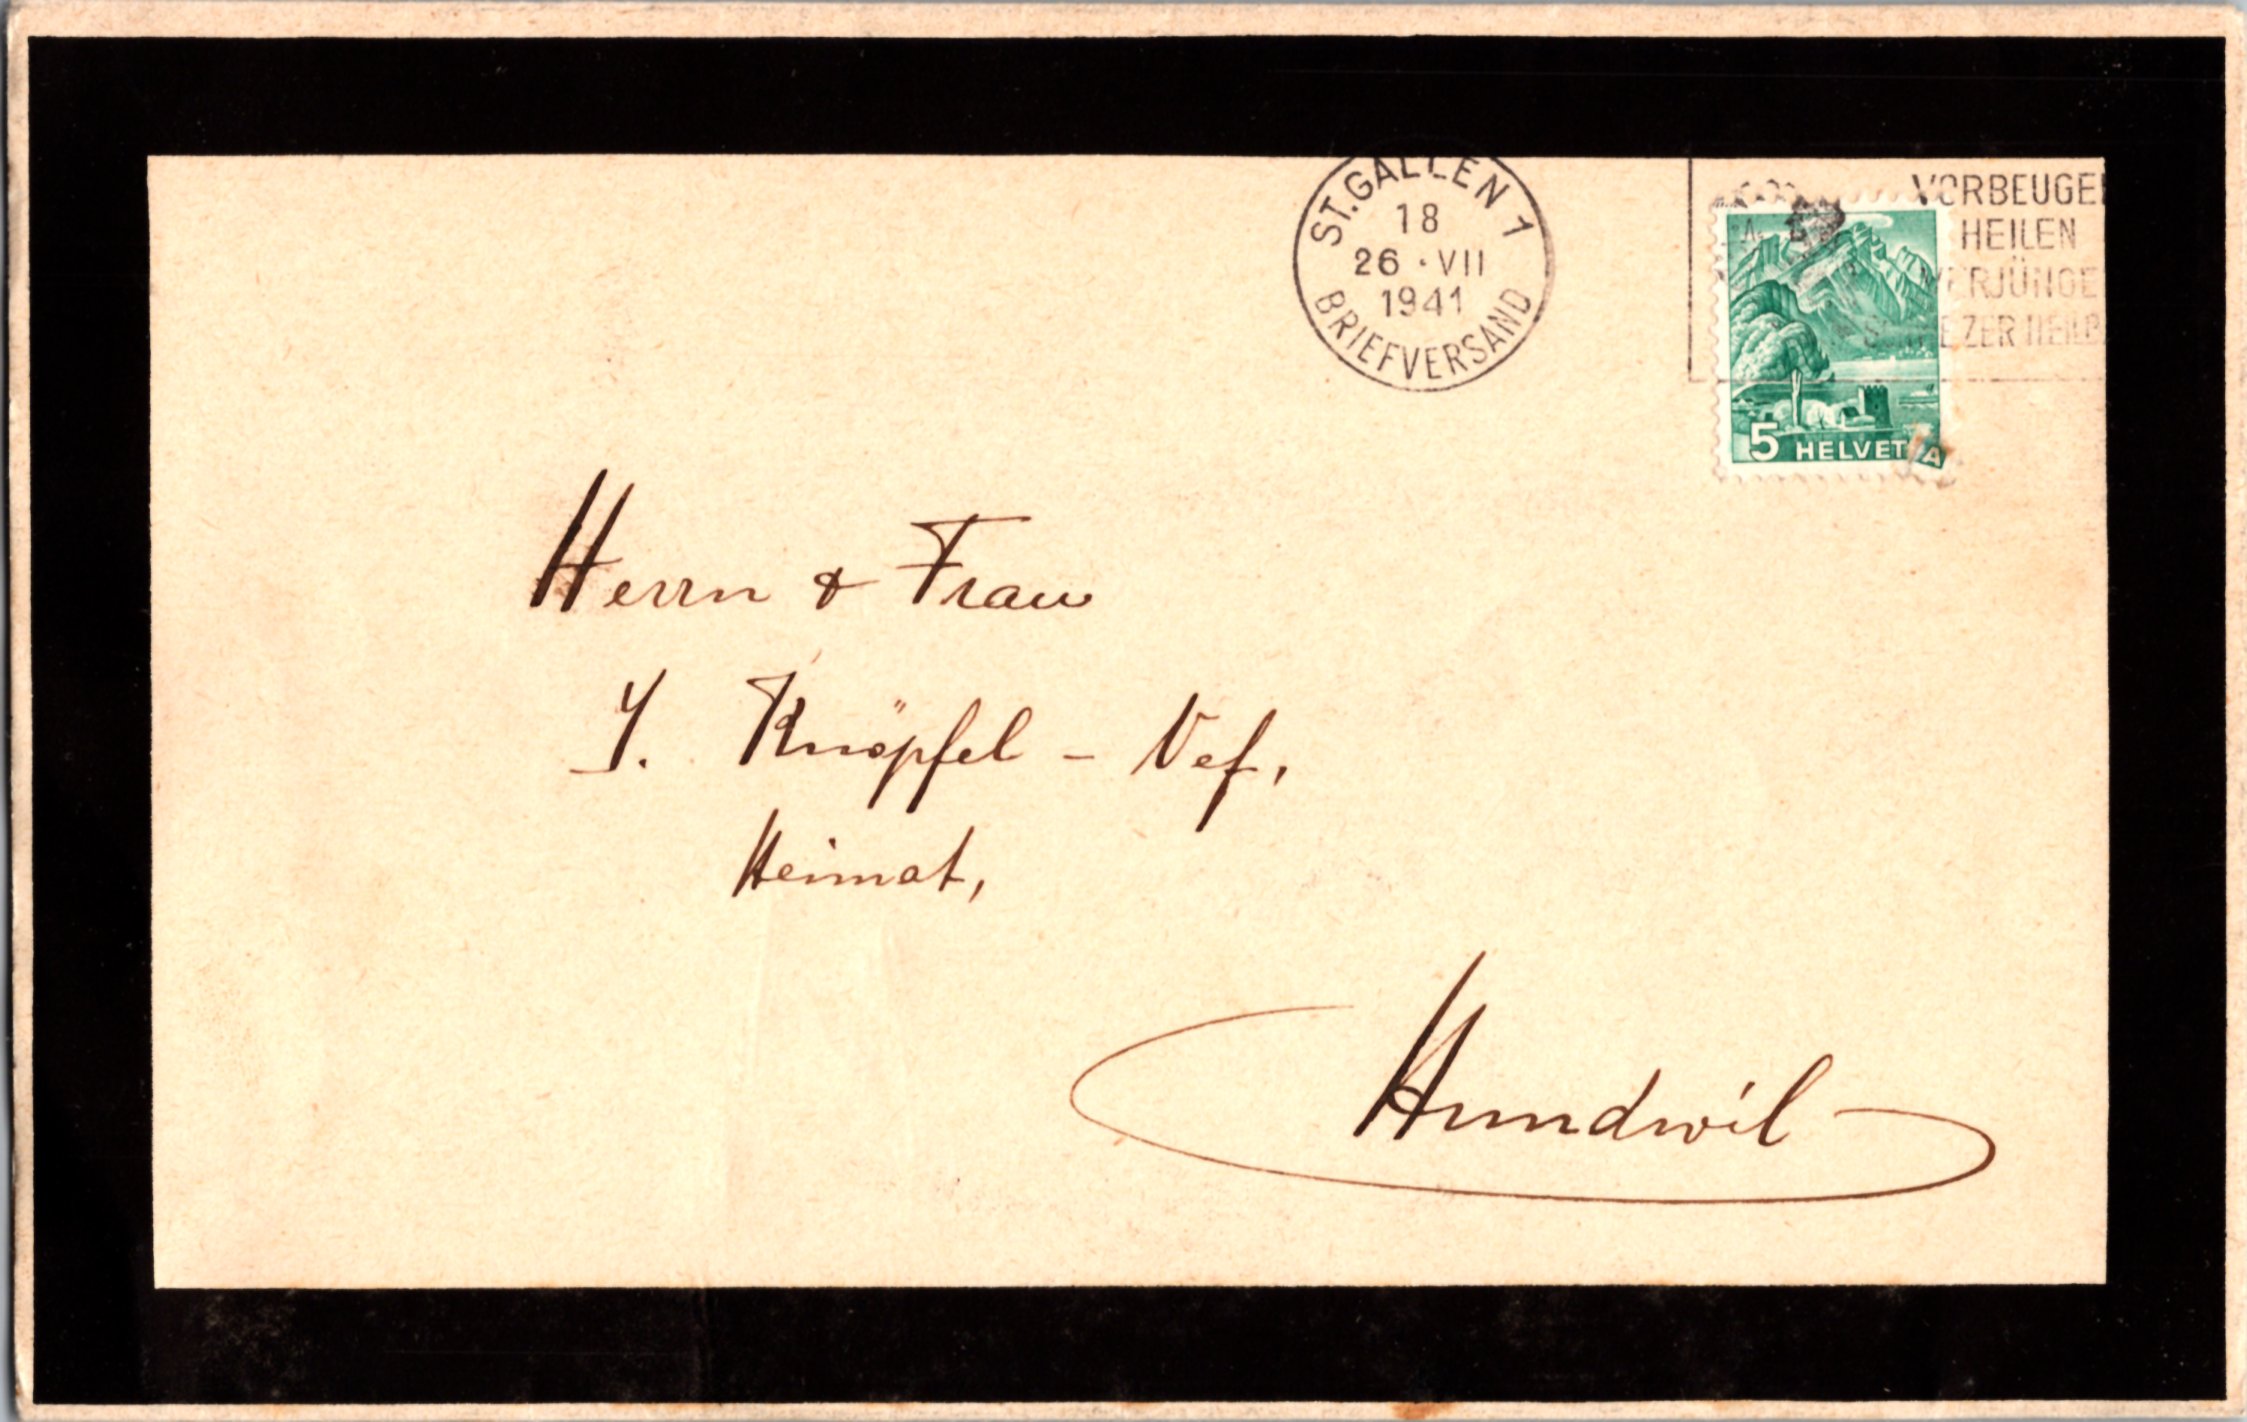 ST. GALLEN 1
18
26 · VII
1941
BRIEFVERSAND
VORBEUGE
HEILEN
VERJÜNGE
5 HELVETIA
Herrn & Frau
J. Knöpfel - Nef,
Heimat,
Hundwil